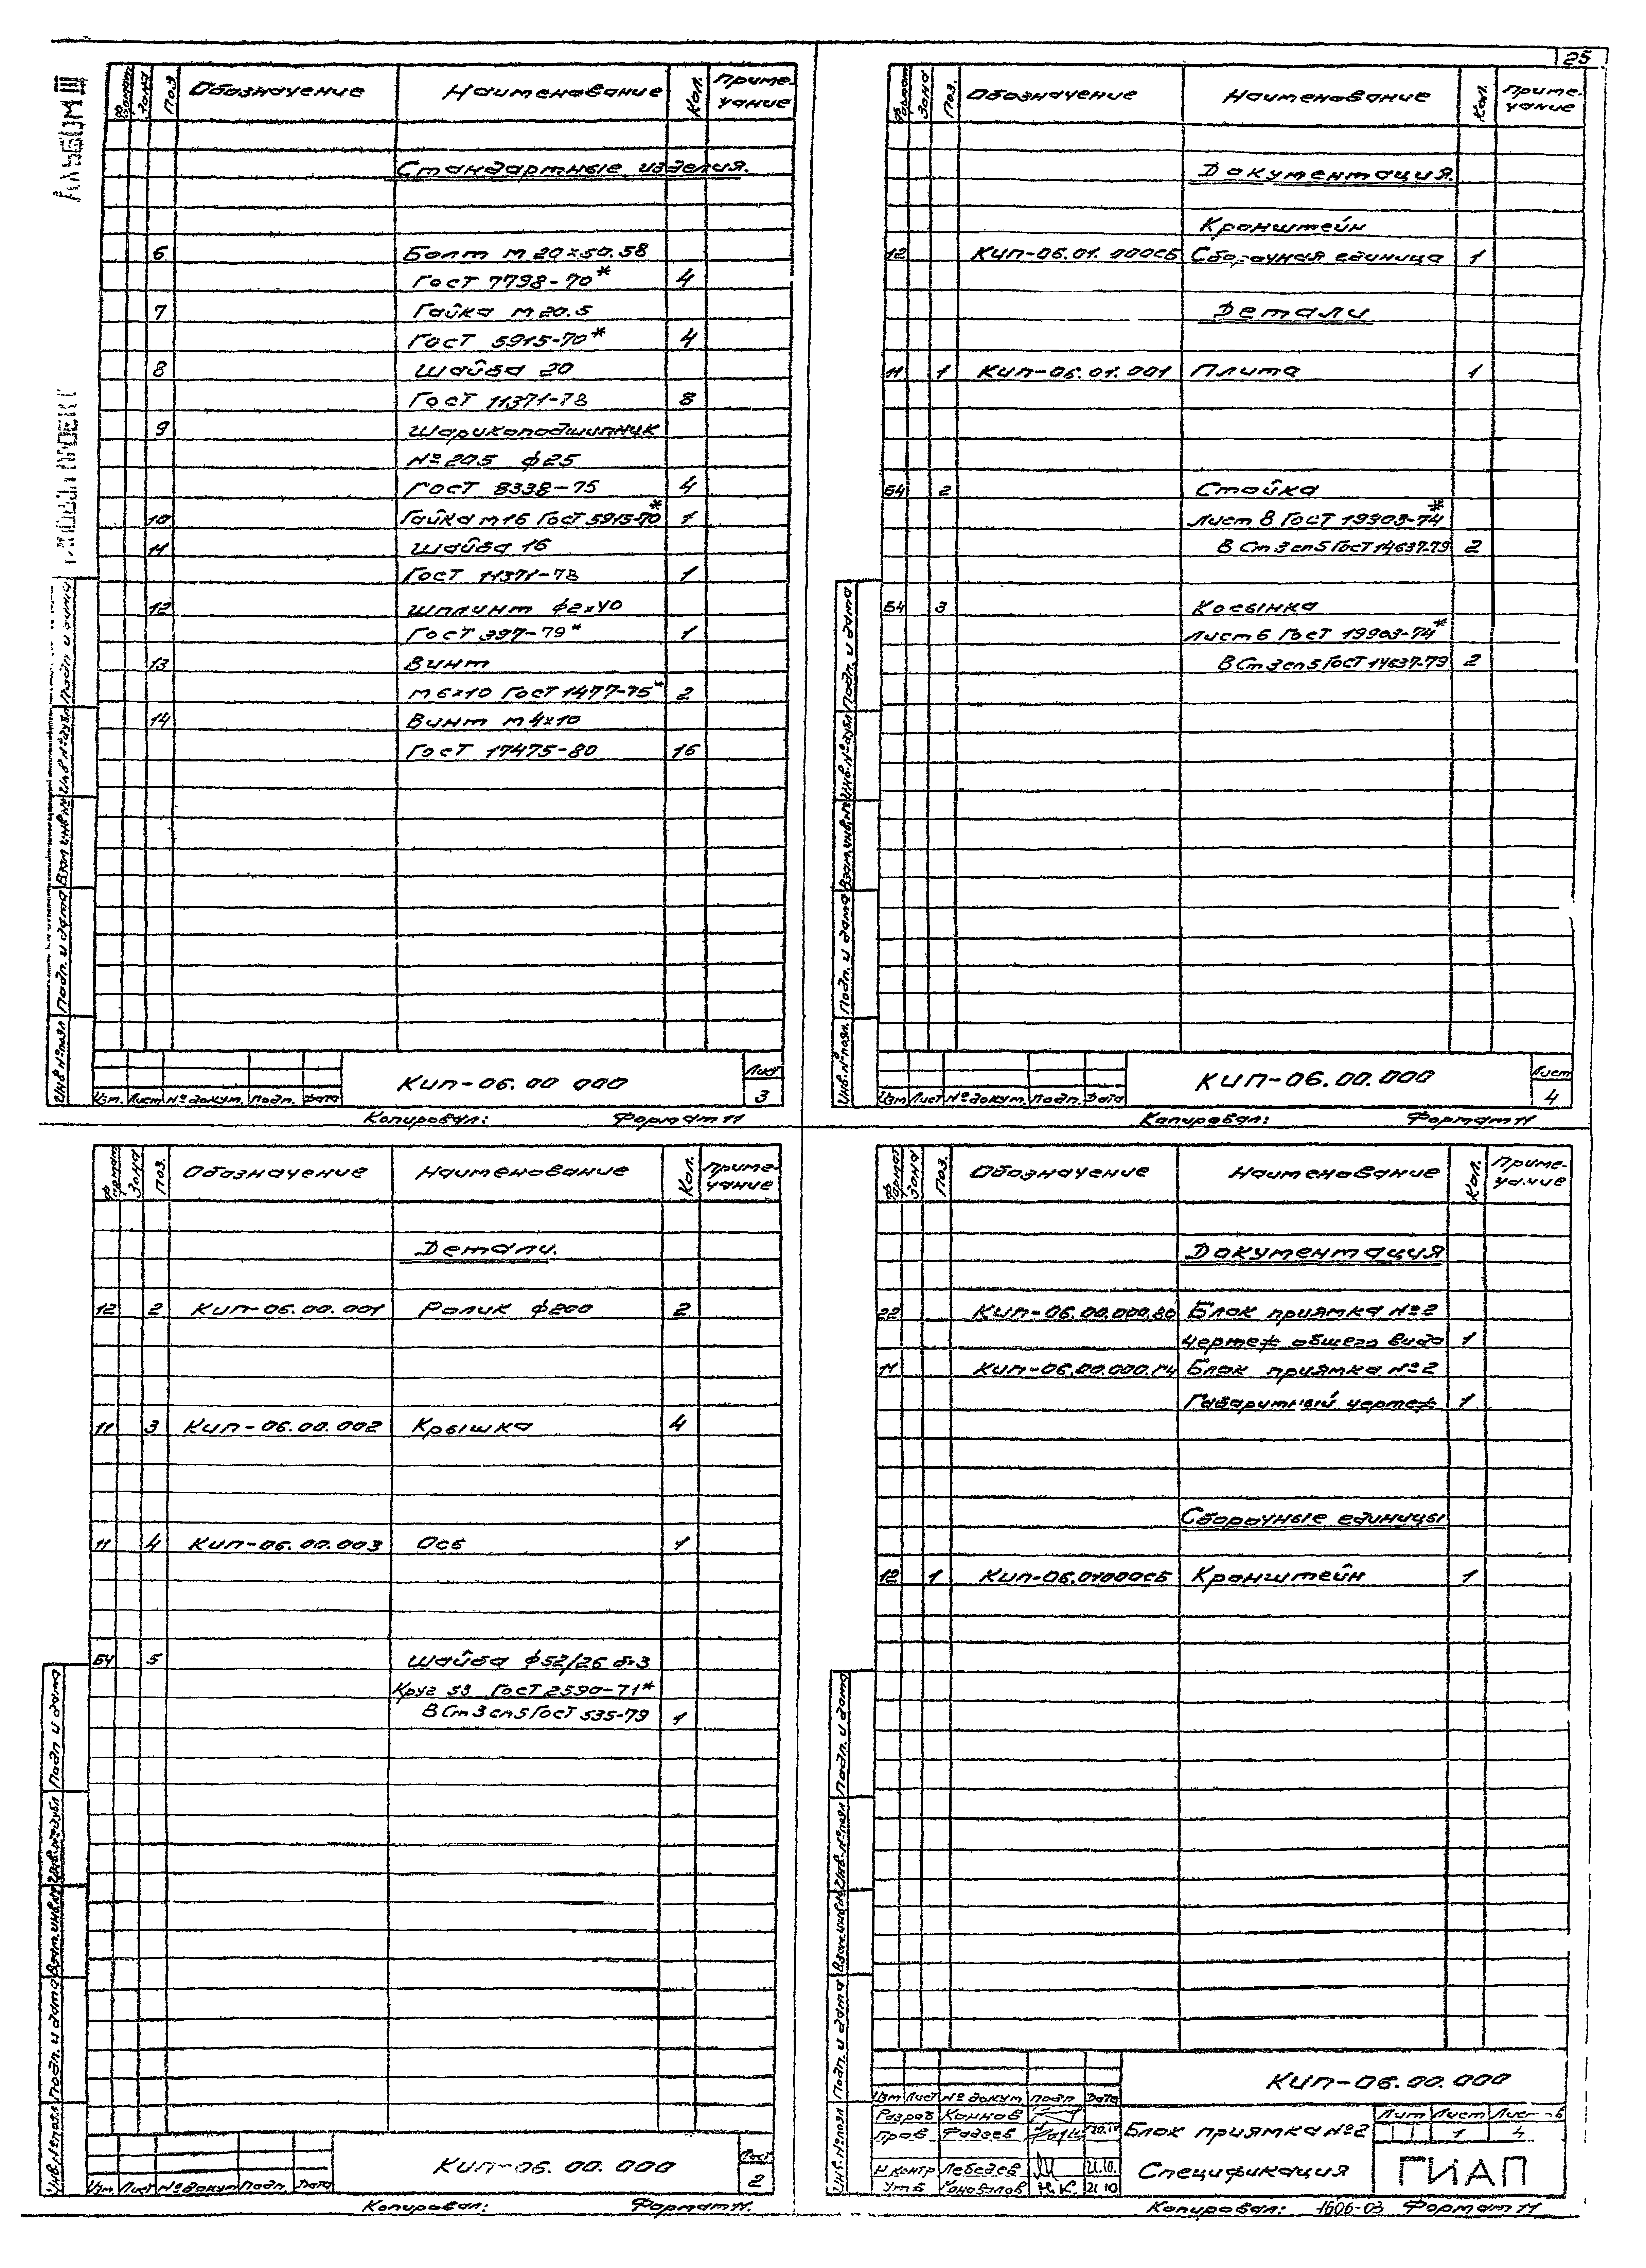 25
Альбом III
Формат Зона Поз. Обозначение Наименование Кол. Примечание
Стандартные изделия.
6 Болт м 20х50.58
ГосТ 7798-70* 4
7 Гайка м 20.5
ГосТ 5915-70* 4
8 Шайба 20
ГосТ 11371-78 8
9 Шарикоподшипник
№ 205 ф25
ГосТ 8338-75 4
10 Гайка м16 ГосТ 5915-70* 1
11 Шайба 16
ГосТ 11371-78 1
12 Шплинт ф2х40
ГосТ 397-79* 1
13 Винт
м 6х10 ГосТ 1477-75* 2
14 Винт м 4х10
ГосТ 17475-80 16
Инв.№подл Подп. и дата Взам.инв.№ Инв.№дубл Подп. и дата
Изм. Лист № докум. Подп. Дата
КИП-06.00 000
Лист
3
Копировал: Формат 11
Формат Зона Поз. Обозначение Наименование Кол. Примечание
Документация.
Кронштейн
12 КИП-06.01.000СБ Сборочная единица 1
Детали
11 1 КИП-06.01.001 Плита 1
БЧ 2 Стойка
Лист 8 ГосТ 19903-74*
В Ст 3 сп5 ГосТ 14637-79 2
БЧ 3 Косынка
Лист 6 ГосТ 19903-74*
В Ст 3 сп5 ГосТ 14637-79 2
Инв.№подл. Подп. и дата Взам.инв.№ Инв.№дубл Подп. и дата
Изм Лист № докум. Подп. Дата
КИП-06.00.000
Лист
4
Копировал: Формат 11
Формат Зона Поз. Обозначение Наименование Кол. Примечание
Детали.
12 2 КИП-06.00.001 Ролик ф200 2
11 3 КИП-06.00.002 Крышка 4
11 4 КИП-06.00.003 Ось 1
БЧ 5 Шайба ф52/26 б=3
Круг 53 ГосТ 2590-71*
В Ст 3 сп5 ГосТ 535-79 1
Инв.№подл Подп. и дата Взам.инв.№ Инв.№дубл Подп и дата
Изм Лист № докум Подп. Дата
КИП-06.00.000
Лист
2
Копировал: Формат 11.
Формат Зона Поз. Обозначение Наименование Кол. Примечание
Документация
22 КИП-06.00.000.ВО Блок приямка №2
Чертеж общего вида 1
11 КИП-06.00.000.ГЧ Блок приямка №2
Габаритный чертеж 1
Сборочные единицы
12 1 КИП-06.01000СБ Кронштейн 1
Инв.№подл Подп. и дата Взам.инв.№ Подп. и дата
КИП-06.00.000
Изм Лист № докум Подп Дата
Разраб Коннов
Пров Фадеев
Н контр Лебедев 21.10.
Утв Коновалов 21 10
Блок приямка №2
Спецификация
Лит Лист Листов
1 4
ГИАП
Копировал: 1606-03 Формат 11